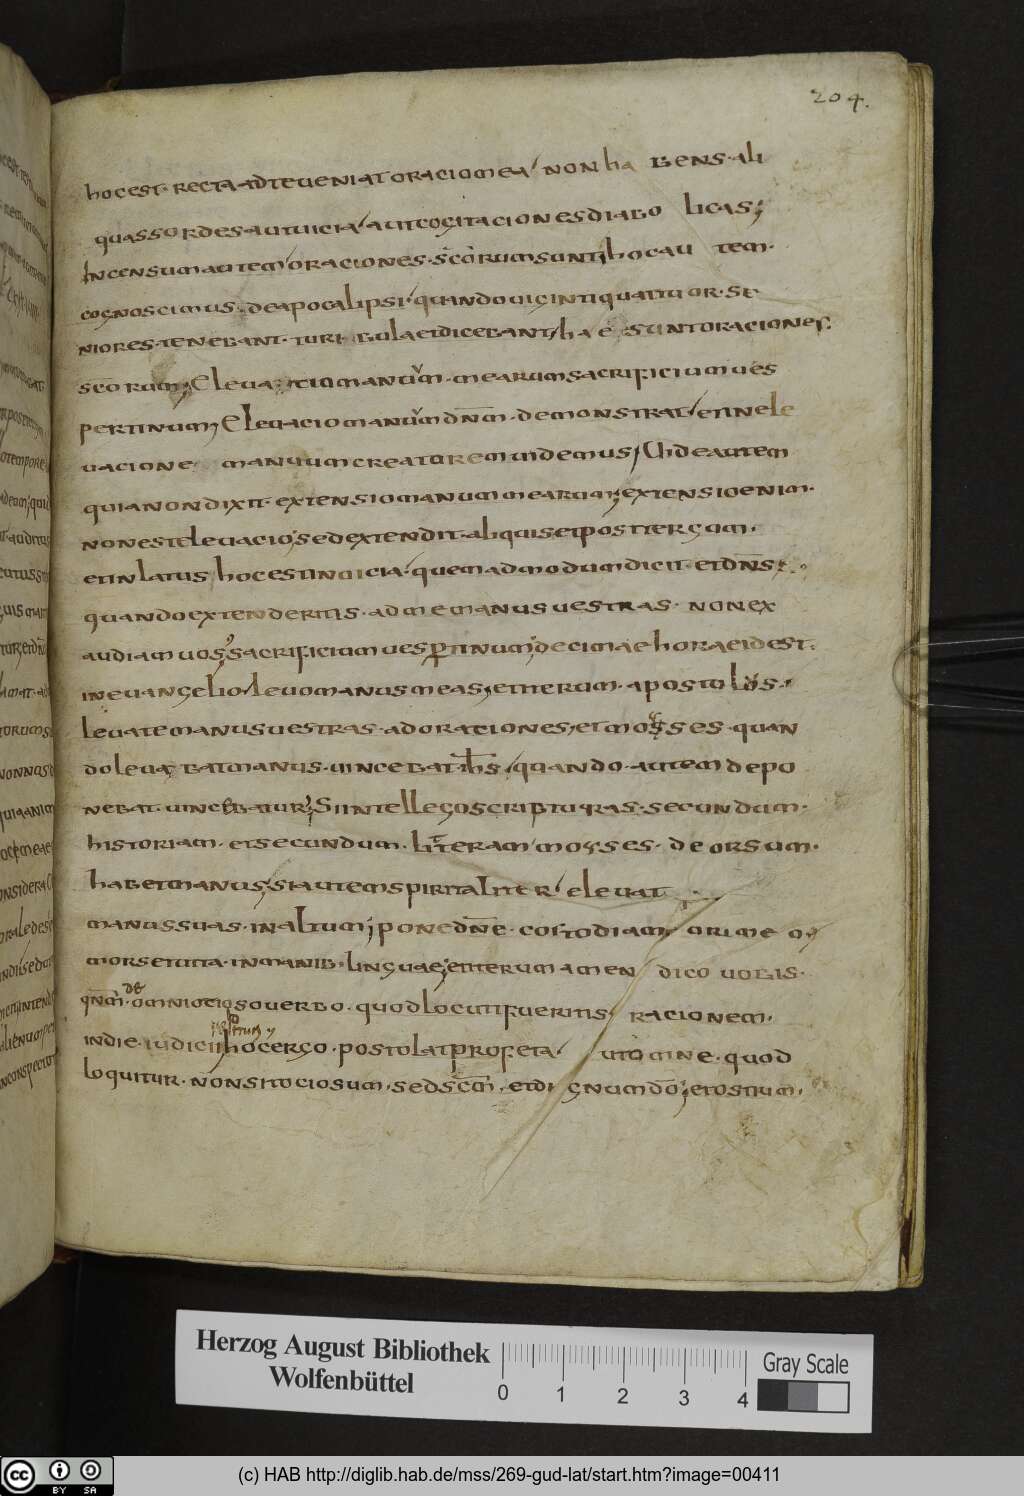 204.
hocest· recta· adteueniat oraciomea non ha bens· ali
quassordes autuicia autcogitaciones diabo licas;
Incensum autem oraciones· scorum sunt; hocau tem·
cognoscimus· deapocalipsi· quando uiginti quattuor· se
niores· tenebant· turibula etdicebant; hae sunt oraciones·
scorum; Eleua ciomanuum· mearum sacrificium ues
pertinum; Eleuaciomanuum dnm· demonstrat etinele
uacione manuum creatorem uidemus; Uide autem
quia non dixit· extensiomanuum mearum; extensioenim·
nonesteleuacio; sedextendit· aliquis etpost tergum·
etinlatus hocestinuicia· quemadmodum dicit· etdns;
quando extenderitis· ad me manus uestras· non ex
audiam uos; sacrificium uesptinum; decimae hora eidest·
ineuangelio leuomanus meas; etiterum· apostolus·
leuatemanus uestras· adorationes; etmoyses· quan
doleuabat manus· uincebat ihs; quando· autem depo
nebat· uincebatur; Siintellegoscripturas· secundum·
historiam· etsecundum· litteram moyses· deorsum·
habetmanus; siautem spiritaliter eleuat
manussuas· inaltum; ponedne· custodiam orimeo
morsetuita· inmanib· linguae; etiterum amen dico uobis·
qnm· de omniociosouerbo· quodlocutifueritis racionem·
indie· iudicii hocergo· postolatprofeta· utomine· quod
loquitur· nonsitociosum· sedscm· etdignumdo; etostium·
Herzog August Bibliothek
Wolfenbüttel
0 1 2 3 4
Gray Scale
cc BY SA
(c) HAB http://diglib.hab.de/mss/269-gud-lat/start.htm?image=00411